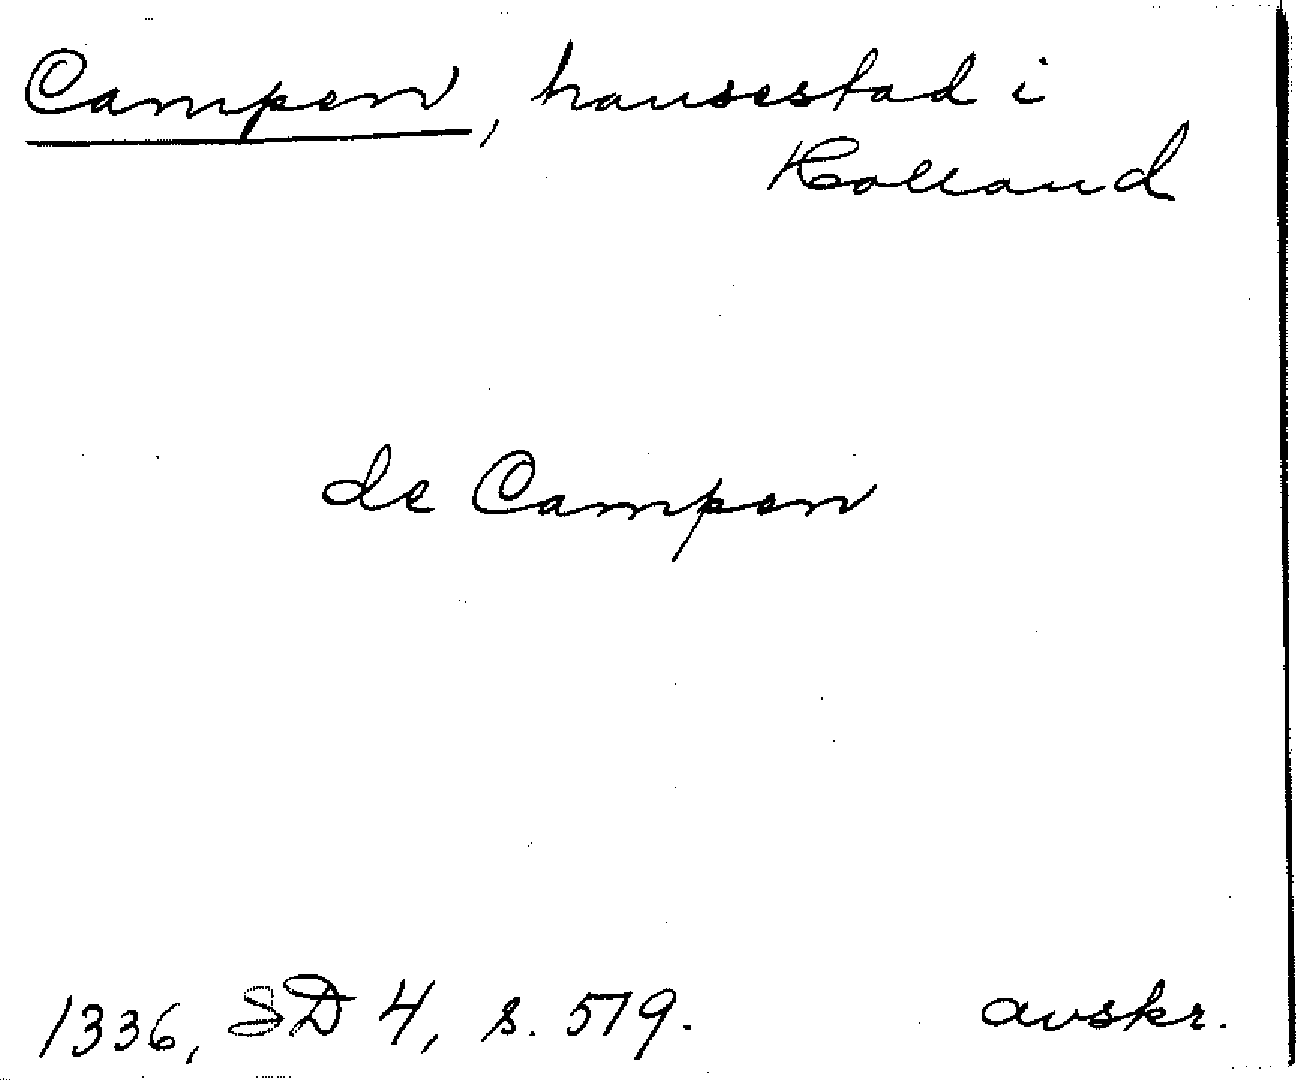 Campen, hansestad i
Holland
de Campen
1336, SD 4, s. 519. avskr.